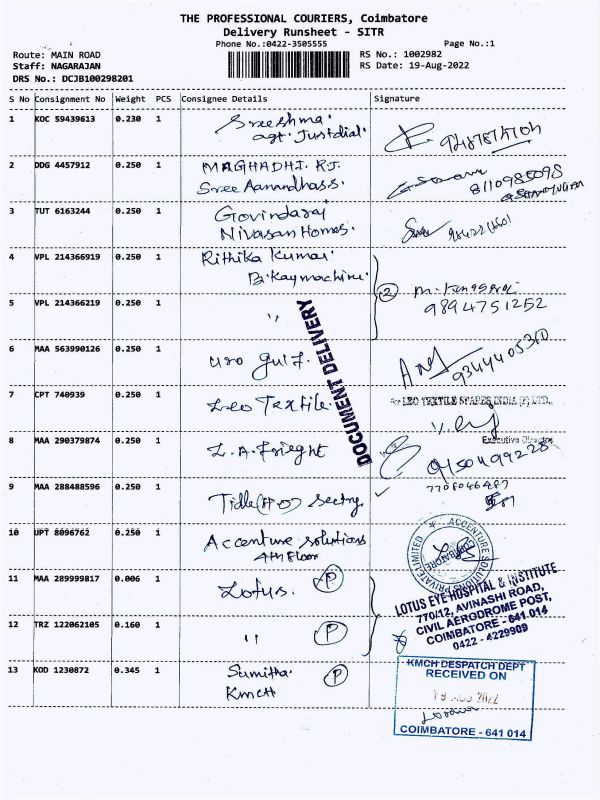 THE PROFESSIONAL COURIERS, Coimbatore
Delivery Runsheet - SITR
Phone No.:0422-3505555
Page No.:1
Route: MAIN ROAD
RS No.: 1002982
Staff: NAGARAJAN
RS Date: 19-Aug-2022
DRS No.: DCJB100298201
S No Consignment No Weight PCS Consignee Details Signature
1 KOC 59439613 0.230 1 Sreeshma
agt. Justdial.
2 DDG 4457912 0.250 1 MAGHADHI. RJ.
Sree Aanandhass.
3 TUT 6163244 0.250 1 Govindaraj
Nivasan Homes.
4 VPL 214366919 0.250 1 Rithika Kumar
B. Kay machine
2
9894751252
5 VPL 214366219 0.250 1 "
DOCUMENT DELIVERY
6 MAA 563990126 0.250 1 uro gulf.
7 CPT 740939 0.250 1 Leo Textile.
for LEO TEXTILE SPARES INDIA (P) LTD.
Executive Director
8 MAA 290379874 0.250 1 L.A. Frieght
9 MAA 288488596 0.250 1
10 UPT 8096762 0.250 1 Accenture solutions
4th Floor
ACCENTURE SOLUTIONS PRIVATE LIMITED
COIMBATORE
11 MAA 289999817 0.006 1 Lotus. P
12 TRZ 122062105 0.160 1 " P
LOTUS EYE HOSPITAL & INSTITUTE
770/12, AVINASHI ROAD,
CIVIL AERODROME POST,
COIMBATORE - 641 014
0422 - 4229909
13 KOD 1230872 0.345 1 Sumitha. P
KMCH
KMCH DESPATCH DEPT
RECEIVED ON
COIMBATORE - 641 014